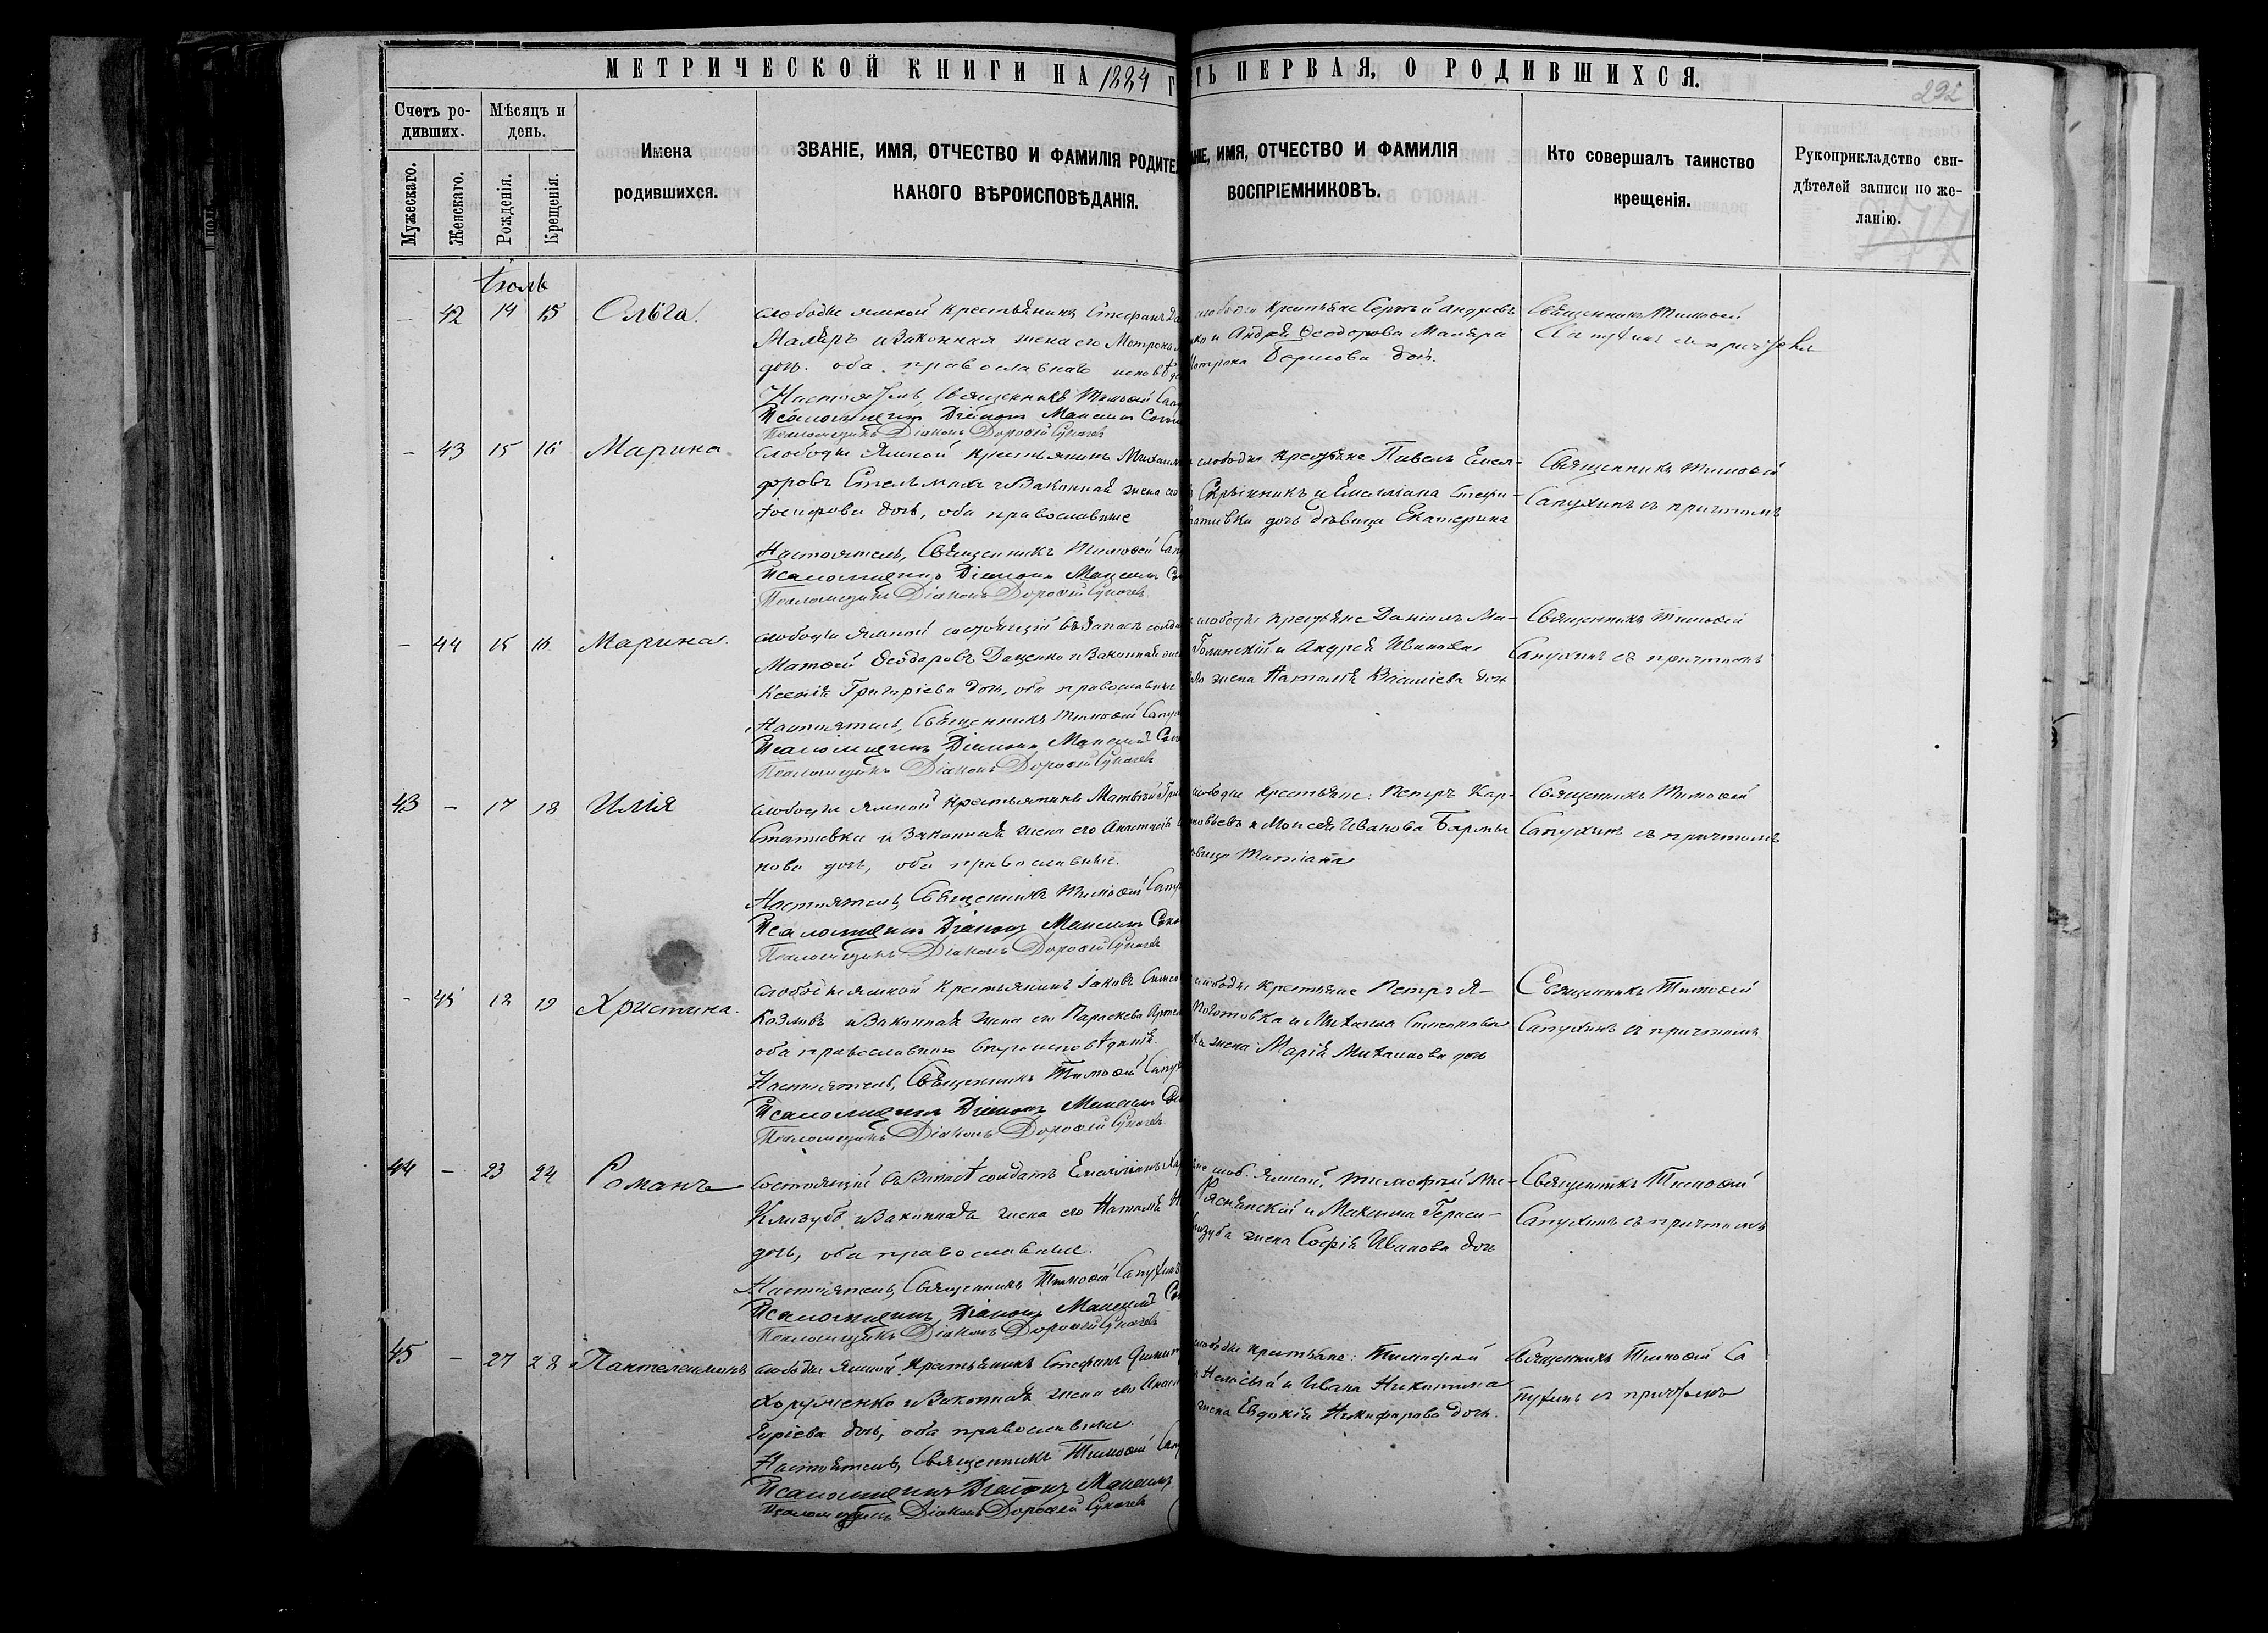 МЕТРИЧЕСКОЙ КНИГИ НА 1884 Г
ТЬ ПЕРВАЯ, О РОДИВШИХСЯ.
292
Счетъ ро-
дившихъ.
Мужескаго.
Женскаго.
Мѣсяцъ и
день.
Рожденія.
Крещенія.
Имена
родившихся.
ЗВАНІЕ, ИМЯ, ОТЧЕСТВО И ФАМИЛІЯ РОДИТЕ
КАКОГО ВѢРОИСПОВѢДАНІЯ.
НІЕ, ИМЯ, ОТЧЕСТВО И ФАМИЛІЯ
ВОСПРІЕМНИКОВЪ.
Кто совершалъ таинство
крещенія.
Рукоприкладство сви-
дѣтелей записи по же-
ланію.
Іюль
— 42 14 15 Ольга.
слободы Ямной крестьянинъ Стефанъ
Маляръ и законная жена его
дочь. оба православнаго
Настоятель, Священникъ Тимоѳей
Псаломщикъ Діаконъ Максимъ
Псаломщикъ Діаконъ Дороѳей Сукачев
слободы крестьяне Сергѣй Андреевъ
и Андрея Ѳеодорова Маляра
Борисова дочь.
Священникъ Тимоѳей
Сапухинъ съ причтомъ
— 43 15 16 Марина.
слободы Ямной крестьянинъ Михаилъ
доровъ Стельмахъ и законная жена его
Іосифова дочь, оба православные
Настоятель, Священникъ Тимоѳей
Псаломщикъ Діаконъ Максимъ
Псаломщикъ Діаконъ Дороѳей Сукачев
слободы крестьяне Павелъ Емел-
Скрынникъ и Емелліана Стефа-
дочь дѣвица Екатерина
Священникъ Тимоѳей
Сапухинъ съ причтомъ
— 44 15 16 Марина.
слободы Ямной состоящій въ запасѣ
Матѳей Ѳеодоровъ Даценко и законная
Ксенія Григоріева дочь, оба православные
Настоятель, Священникъ Тимоѳей
Псаломщикъ Діаконъ Максимъ
Псаломщикъ Діаконъ Дороѳей Сукачев
слободы крестьяне Даніилъ Ми-
Голинскій и Андрея Иванова
жена Наталія Василіева дочь
Священникъ Тимоѳей
Сапухинъ съ причтомъ
43 — 17 18 Илія
слободы Ямной крестьянинъ Матвѣй
Стативка и законная жена его Анастасія
нова дочь, оба православные.
Настоятель, Священникъ Тимоѳей
Псаломщикъ Діаконъ Максимъ
Псаломщикъ Діаконъ Дороѳей Сукачев
слободы крестьяне: Петръ Кар-
и Моисея Иванова
Татіана
Священникъ Тимоѳей
Сапухинъ съ причтомъ
- 45 18 19 Христина.
слободы Ямной крестьянинъ Іаковъ
Козловъ и законная жена его Параскева
оба православнаго вѣроисповѣданія.
Настоятель, Священникъ Тимоѳей
Псаломщикъ Діаконъ Максимъ
Псаломщикъ Діаконъ Дороѳей Сукачев
слободы крестьяне Петръ Я-
и Михаила Степанова
жена Марія Михаилова дочь
Священникъ Тимоѳей
Сапухинъ съ причтомъ
44 — 23 24 Романъ
Состоящій въ запасѣ солдатъ Емелліанъ
Клизубъ и законная жена его Наталія
дочь, оба православные.
Настоятель, Священникъ Тимоѳей Сапухинъ
Псаломщикъ, Діаконъ Максимъ
Псаломщикъ Діаконъ Дороѳей Сукачев
слоб. Ямной, Тимофей Ми-
Ряснянскій и Максима Гераси-
жена Софія Иванова дочь
Священникъ Тимоѳей
Сапухинъ съ причтомъ
45 — 27 28 Пантелеимонъ
слободы Ямной крестьянинъ Стефанъ
Хоруженко и законная жена его
Гуріева дочь, оба православные.
Настоятель, Священникъ Тимоѳей
Псаломщикъ Діаконъ Максимъ
Псаломщикъ Діаконъ Дороѳей Сукачев
слободы крестьяне: Тимофей
и Ивана Никитина
жена Евдокія Никифорова дочь.
Священникъ Тимоѳей Са
пухинъ съ причтомъ